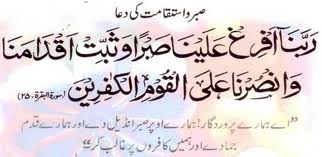 صبر و استقامت کی دعا
رَبَّنَا أَفْرِغْ عَلَيْنَا صَبْرًا وَثَبِّتْ أَقْدَامَنَا
وَانْصُرْنَا عَلَى الْقَوْمِ الْكٰفِرِينَ (سورۃ البقرۃ ۲۵۰)
"اے ہمارے پروردگار! ہمارے اوپر صبر انڈیل دے اور ہمارے قدم
جمادے اور ہمیں کافروں پر غالب کر"